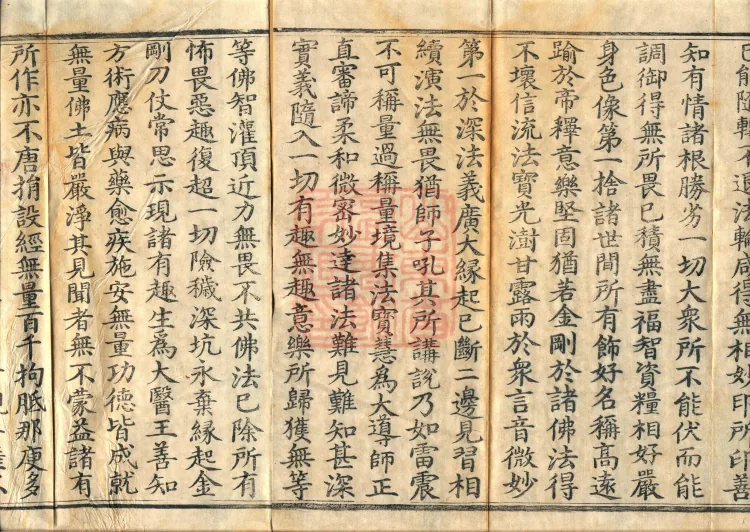 已能隨轉不退法輪咸得無相妙印所印善
知有情諸根勝劣一切大衆所不能伏而能
調御得無所畏已積無盡福智資糧相好嚴
身色像第一捨諸世間所有飾好名稱高遠
踰於帝釋意樂堅固猶若金剛於諸佛法得
不壞信流法寶光澍甘露雨於衆言音微妙
第一於深法義廣大緣起已斷二邊見習相
續演法無畏猶師子吼其所講說乃如雷震
不可稱量過稱量境集法寶慧爲大導師正
直審諦柔和微密妙達諸法難見難知甚深
實義隨入一切有趣無趣意樂所歸獲無等
等佛智灌頂近力無畏不共佛法已除所有
怖畏惡趣復超一切險穢深坑永棄緣起金
剛刀仗常思示現諸有趣生爲大醫王善知
方術應病與藥愈疾施安無量功德皆成就
無量佛土皆嚴淨其見聞者無不蒙益諸有
所作亦不唐捐設經無量百千拘胝那庾多